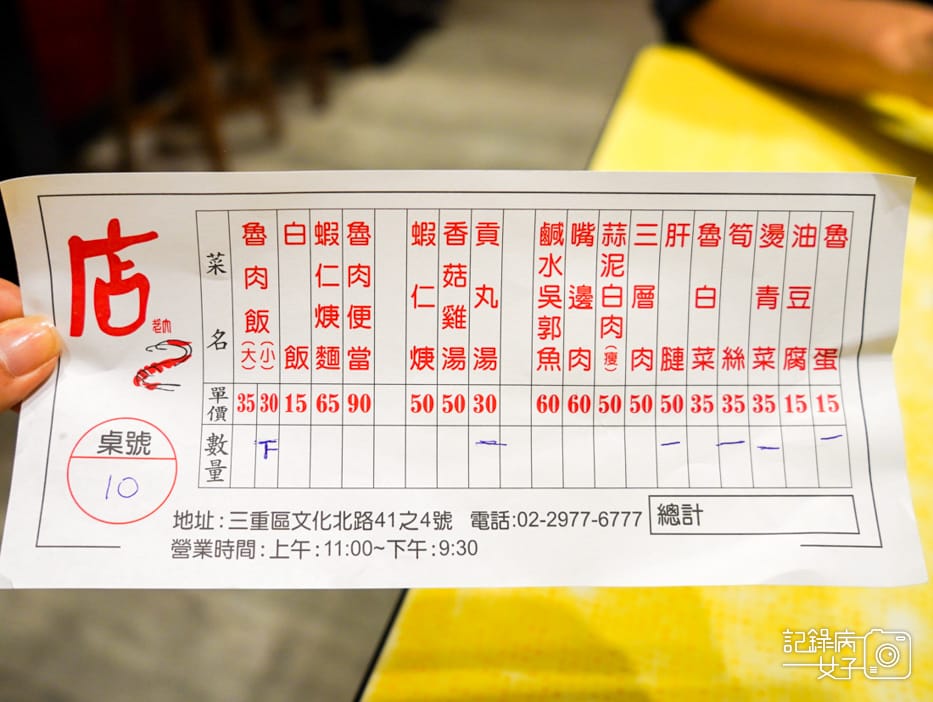 店
老大
桌號
10
菜名 單價 數量
魯肉飯(大) 35
(小) 30 下
白飯 15
蝦仁焿麵 65
魯肉便當 90
蝦仁焿 50
香菇雞湯 50
貢丸湯 30 一
鹹水吳郭魚 60
嘴邊肉 60
蒜泥白肉(瘦) 50
三層肉 50
肝腱 50 一
魯白菜 35
筍絲 35 一
燙青菜 35 一
油豆腐 15
魯蛋 15 一
地址:三重區文化北路41之4號 電話:02-2977-6777
總計
營業時間:上午:11:00~下午:9:30
記錄病
女子